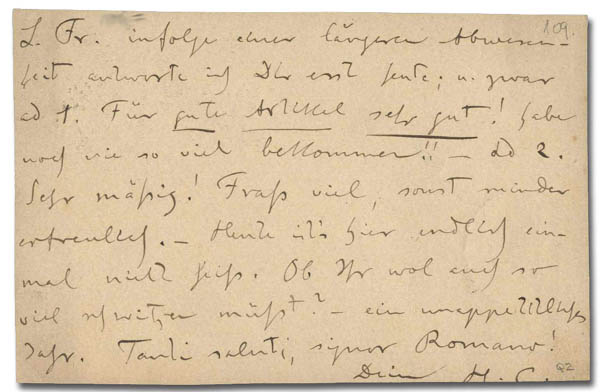 109.
L. Fr. infolge einer längeren Abwesen-
heit antworte ich Dir erst heute; u. zwar
ad 1. Für gute Artikel sehr gut! habe
noch nie so viel bekommen!! – Ad 2.
Sehr mäßig! Fraß viel, sonst minder
erfreulich. – Heute ist's hier endlich ein-
mal nicht heiß. Ob Ihr wol auch so
viel schwitzen müßt? – ein unappetitliches
Jahr. Tanti saluti, signor Romano!
Dein H. G.